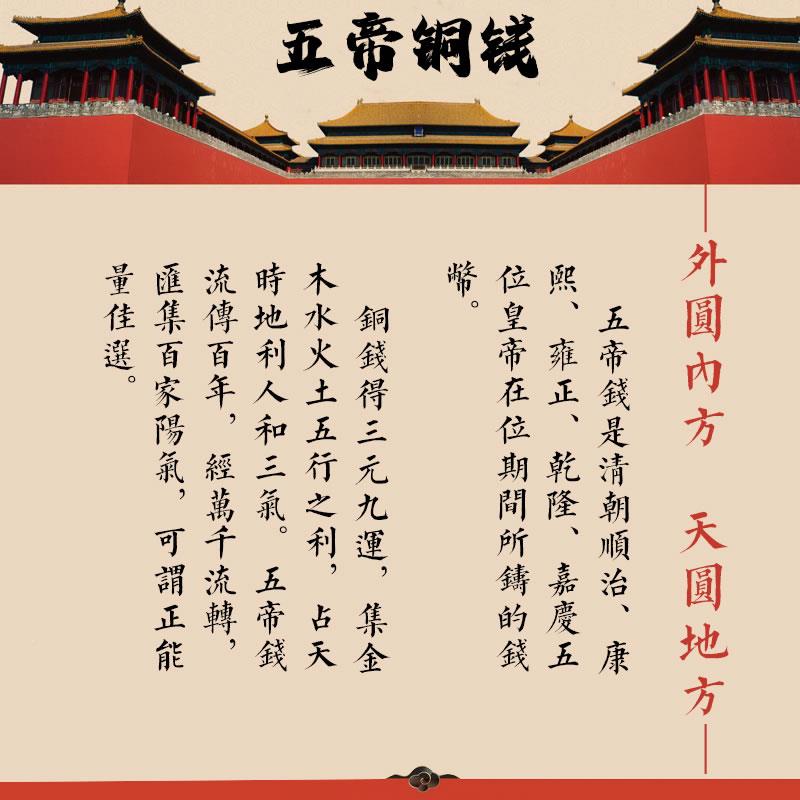 五帝铜钱
外圓內方 天圓地方
五帝錢是清朝順治、康
熙、雍正、乾隆、嘉慶五
位皇帝在位期間所鑄的錢
幣。
銅錢得三元九運，集金
木水火土五行之利，占天
時地利人和三氣。五帝錢
流傳百年，經萬千流轉，
匯集百家陽氣，可謂正能
量佳選。